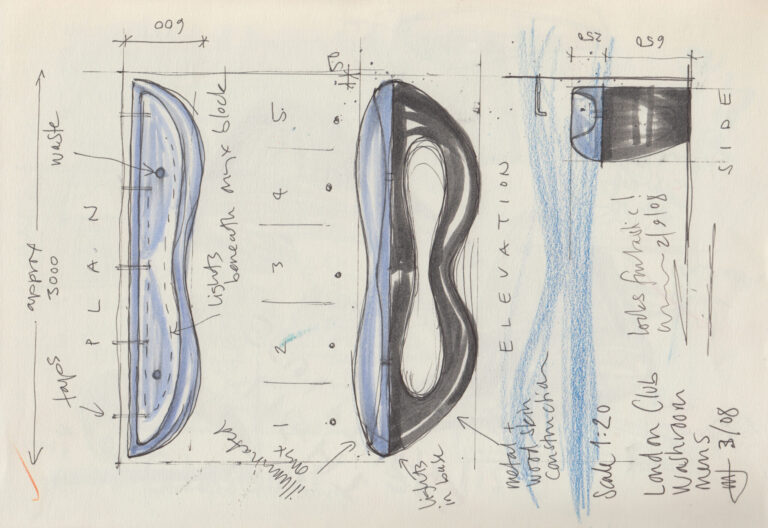 600
approx
3000
waste
taps
PLAN
lights
beneath onyx block
1
2
3
4
5
illuminated
onyx
50
lights
in base
ELEVATION
metal +
wood skin
construction
250
650
SIDE
looks fantastic!
2/9/08
Scale 1:20
London Club
Washroom
mens
3/08